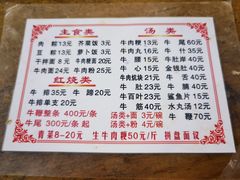 主食类
汤类
肉粽 13元 芥菜饭 3元
豆粽 13元 萝卜饭 3元
干拌面 8元 牛肉粳面 20元
牛肉面 20元 牛肉粉 25元
红烧类
牛楠 35元 牛蹄 20元
牛排单支 20元
牛鞭整条 400元/条
牛尾 300元/条 起
牛肉粳 13元 牛尾 60元
牛肉 15元 牛肚 15元
牛腰 15元 牛肚岸
牛心 15元 金钱肚
牛舌 15元 牛肉
牛肚 15元 牛
牛百叶 15元 牛
牛筋 40元 水丸汤 12元
汤类+面 3元/碗 牛鞭 70元
汤类+粉 4元/碗
青菜 8-20元 生牛肉粳 50元/斤 拼盘面议